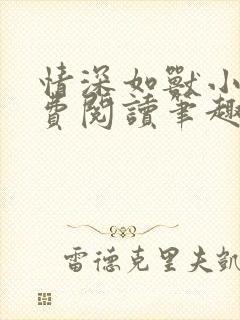 情深如獸小
費閱讀筆趣
雷德克里夫凱